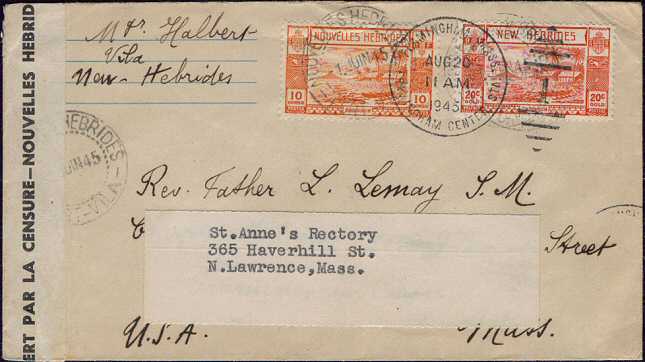 ERT PAR LA CENSURE—NOUVELLES HEBRID
Mr. Halbert
Vila
New-Hebrides
NOUVELLES HEBRIDES
10
10
NEW HEBRIDES
20c
20c
GOLD
GOLD
AUG 20
11 AM
1945
HAM CENTER
1
HEBRIDES
JUIN 45
VILA
Rev. Father L. Lemay S. M.
Street
St.Anne's Rectory
365 Haverhill St.
N.Lawrence,Mass.
U.S.A.
Mass.